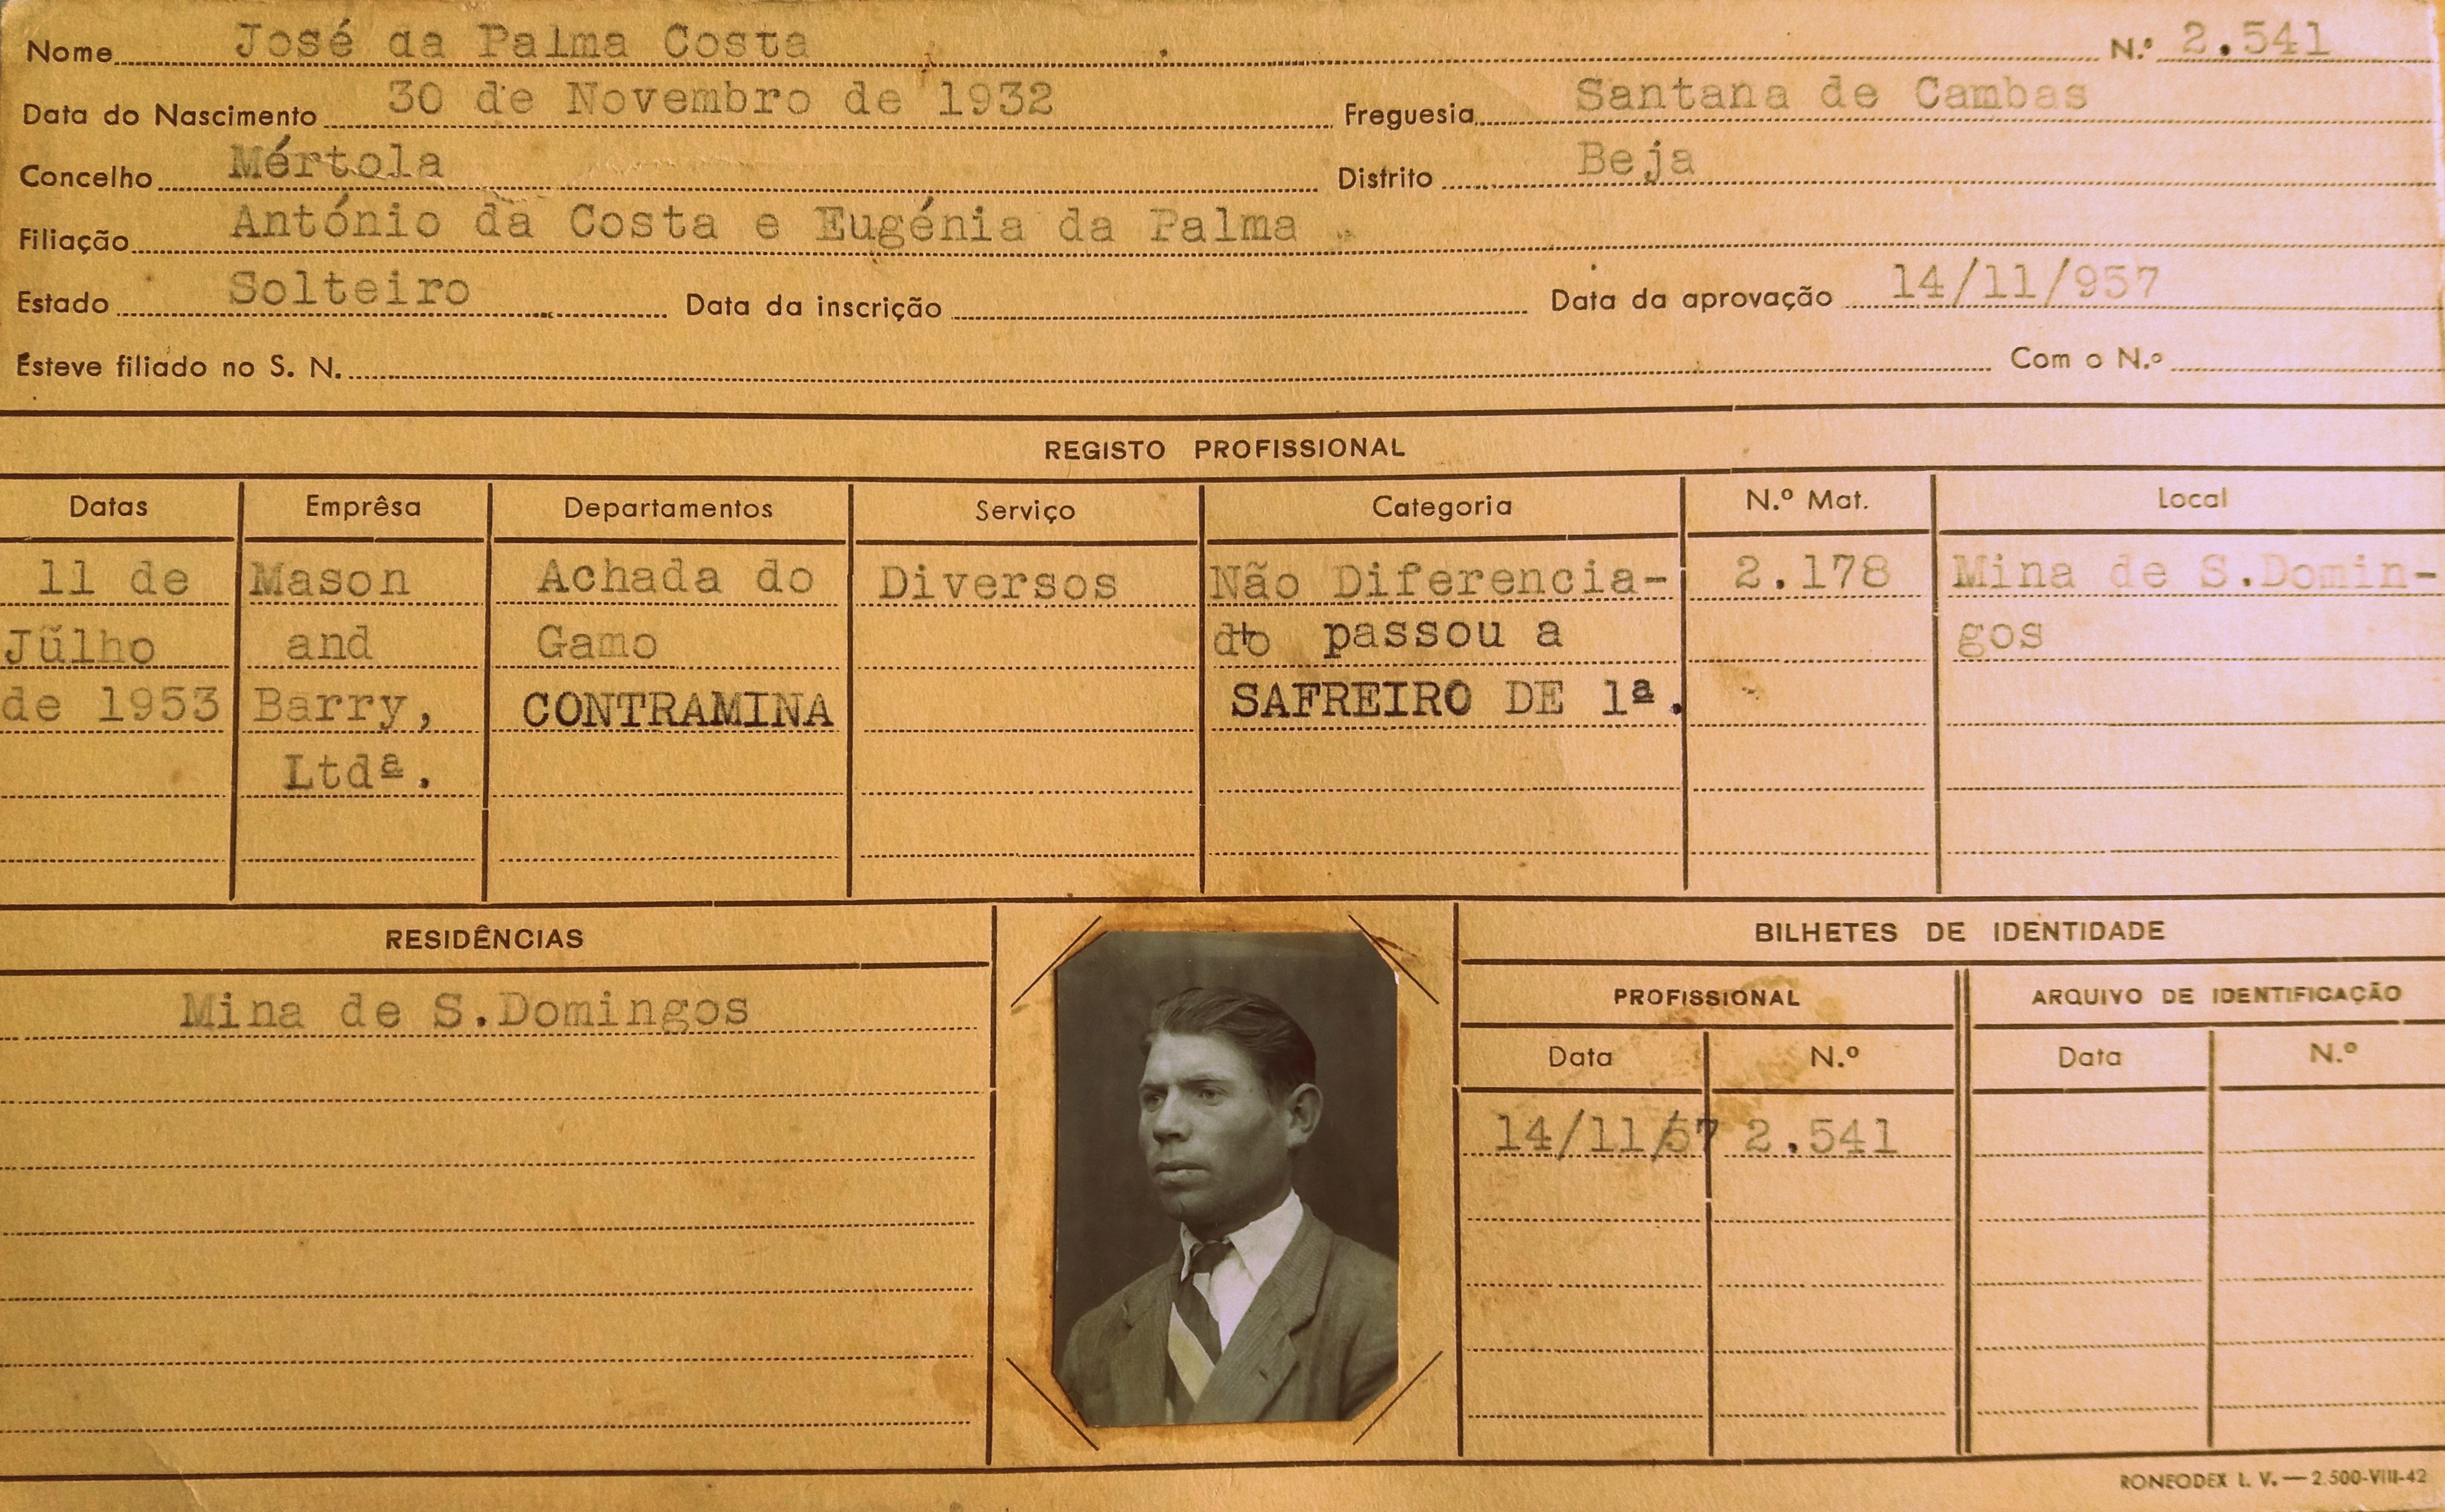 Nome José da Palma Costa N.º 2.541
Data do Nascimento 30 de Novembro de 1932 Freguesia Santana de Cambas
Concelho Mértola Distrito Beja
Filiação António da Costa e Eugénia da Palma
Estado Solteiro Data da inscrição Data da aprovação 14/11/957
Esteve filiado no S. N. Com o N.º
REGISTO PROFISSIONAL
Datas Emprêsa Departamentos Serviço Categoria N.º Mat. Local
11 de Mason Achada do Diversos Não Diferencia- 2.178 Mina de S.Domin-
Julho and Gamo do passou a gos
de 1953 Barry, CONTRAMINA SAFREIRO DE 1ª.
Ltdª.
RESIDÊNCIAS
Mina de S.Domingos
BILHETES DE IDENTIDADE
PROFISSIONAL ARQUIVO DE IDENTIFICAÇÃO
Data N.º Data N.º
14/11/57 2.541
RONEODEX L. V. — 2.500-VIII-42